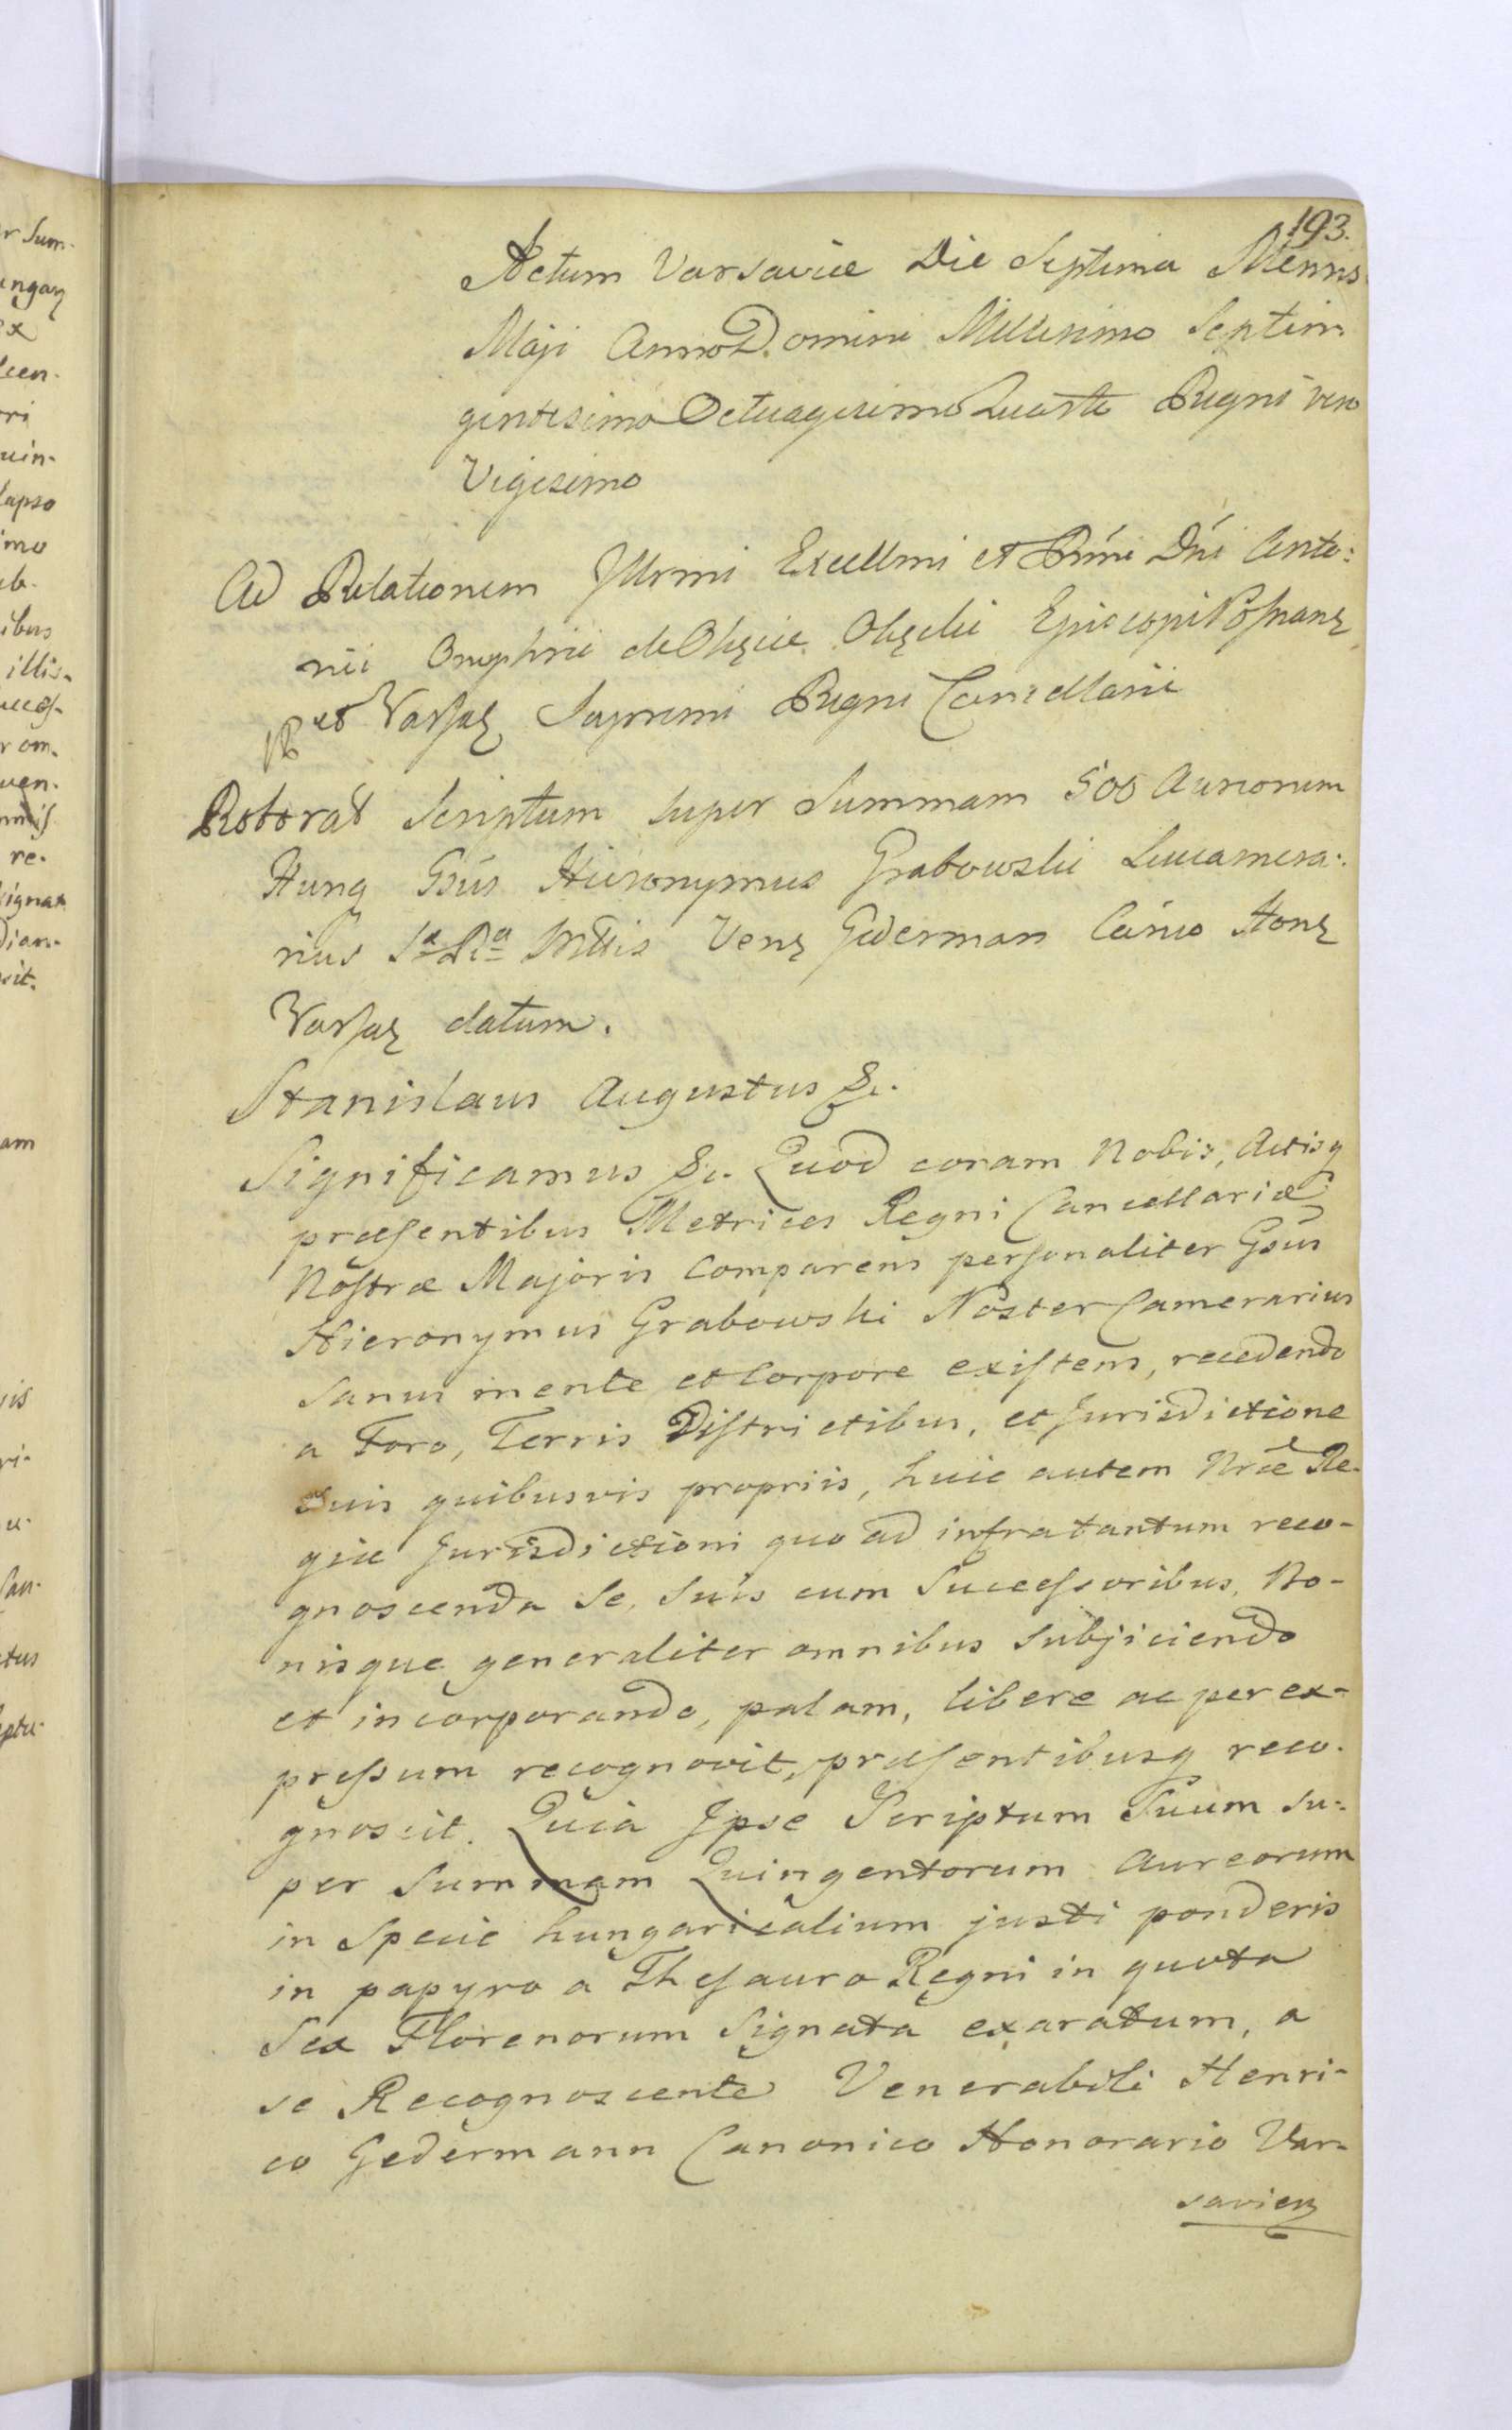 193.
Actum Varsaviæ Die Septima Mensis
Maji Anno Domini Millesimo Septin
gentesimo Octuagesimo Quarto Regni vero
Vigesimo
Ad Relationem Illrmi Excellmi et Rmi Dni Anto:
nii Onuphrii de Okęcie Okęcki Episcopi Posnanę
et Varsaę Supremi Regni Cancellarii
Roborat Scriptum super Summam 500 Aureorum
Hung Gsus Hieronymus Grabowski Succamera:
rius Sæ Ræ Mttis Venę Gederman Canco Honę
Varsaę datum.
Stanislaus Augustus &c.
Significamus &c. Quod coram Nobis, Actisq
præsentibus Metrices Regni Cancellariæ
Nostræ Majoris Comparens personaliter Gsus
Hieronymus Grabowski Noster Camerarius
Sanus mente et Corpore existens, recedendo
a Foro, Terris Districtibus, et Jurisdictione
suis quibusvis propriis, huic autem Nræ Re-
giæ Jurisdictioni quo ad infra tantum reco-
gnoscenda Se, Suis cum Successoribus, Bo-
nisque generaliter omnibus Subjiciendo
et incorporando, palam, libere ac per ex-
pressum recognovit, præsentibusq reco-
gnoscit. Quia Ipse Scriptum Suum Su-
per Summam Quingentorum Aureorum
in Specie hungaricalium justi ponderis
in papyro a Thesauro Regni in quota
Sex Florenorum Signata exaratum, a
se Recognoscente Venerabili Henri-
co Gedermann Canonico Honorario Var-
savien
r Sum-
ungaę
ex
ri
uin-
lapso
imo
ub-
ibus
illis-
r om-
uen-
re-
signat
sit.
am
sis
ri-
u-
Can-
ctus
eptu-